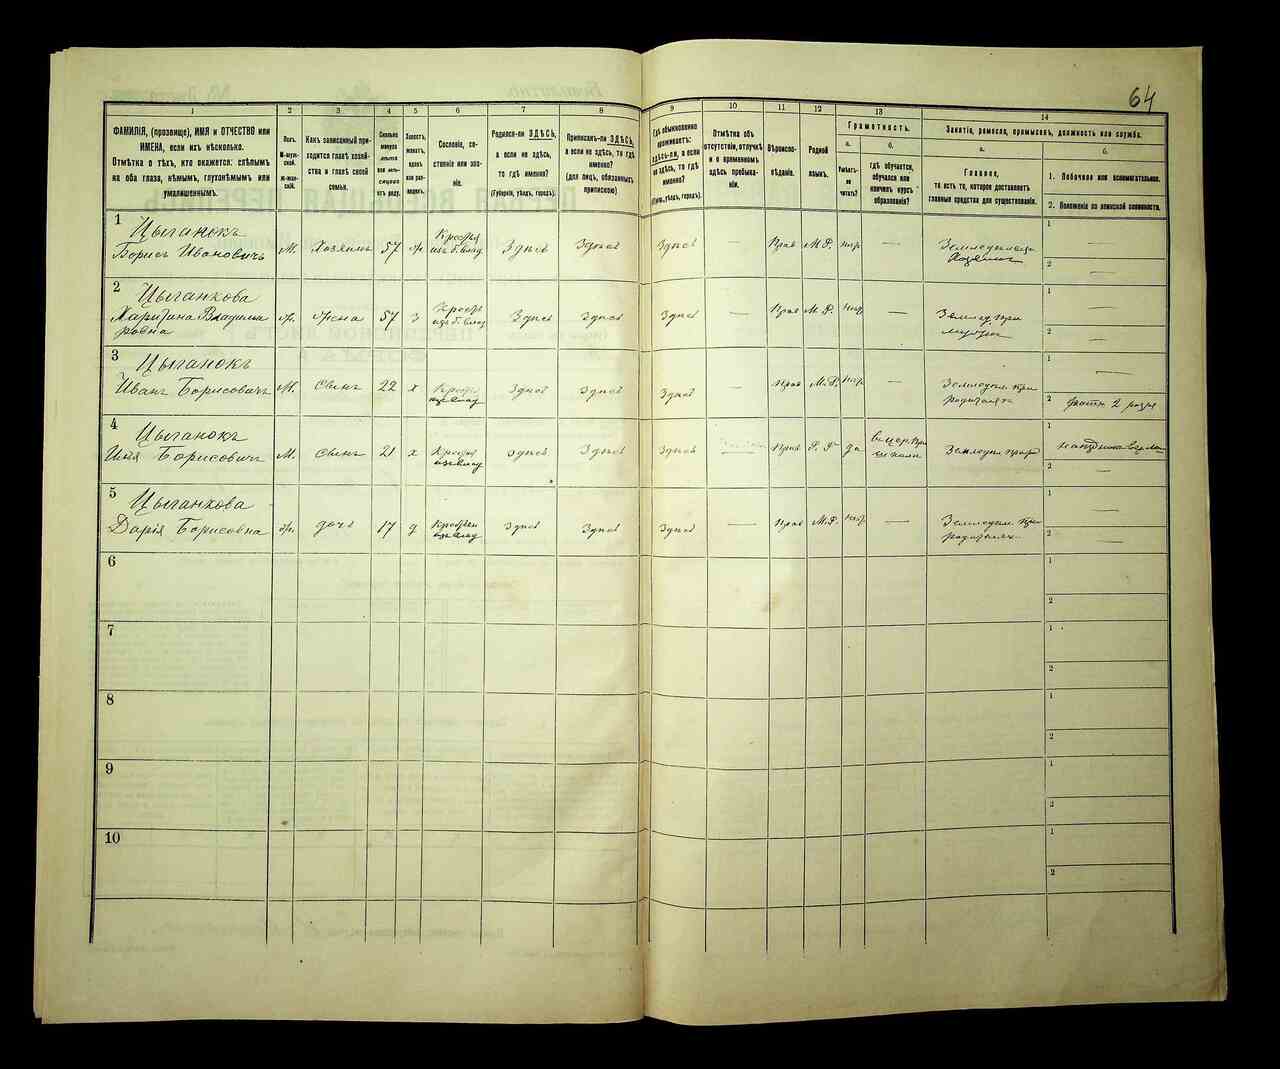 64
1 2 3 4 5 6 7 8 9 10 11 12 13 14
ФАМИЛІЯ, (прозвище), ИМЯ и ОТЧЕСТВО или
ИМЕНА, если ихъ нѣсколько.
Отмѣтка о тѣхъ, кто окажется: слѣпымъ
на оба глаза, нѣмымъ, глухонѣмымъ или
умалишеннымъ.
Полъ.
М-мужской.
Ж-женскій.
Какъ записанный при-
ходится главѣ хозяй-
ства и главѣ своей
семьи.
Сколько
минуло
лѣтъ
или мѣся-
цевъ
отъ роду.
Холостъ,
женатъ,
вдовъ
или раз-
веденъ.
Сословіе, со-
стояніе или зва-
ніе.
Родился-ли ЗДѢСЬ,
а если не здѣсь,
то гдѣ именно?
(Губернія, уѣздъ, городъ).
Приписанъ-ли ЗДѢСЬ,
а если не здѣсь, то гдѣ
именно?
(для лицъ, обязанныхъ
припискою)
Гдѣ обыкновенно
проживаетъ:
ЗДѢСЬ-ли, а если
не здѣсь, то гдѣ
именно?
(Губерн., уѣздъ, городъ).
Отмѣтка объ
отсутствіи, отлучкѣ
и о временномъ
здѣсь пребыва-
ніи.
Вѣроиспо-
вѣданіе.
Родной
языкъ.
Грамотность.
а.
Умѣетъ-
ли
читать?
б.
гдѣ обучается,
обучался или
кончилъ курсъ
образованія?
Занятіе, ремесло, промыселъ, должность или служба.
а.
Главное,
то есть то, которое доставляетъ
главныя средства для существованія.
б.
1. Побочное или вспомогательное.
2. Положеніе по воинской повинности.
1
Цыганокъ
Борисъ Ивановичъ
М. Хозяинъ 57 ж
Крестья
изъ б. влад
Здѣсь Здѣсь Здѣсь — Прав М.Р. нѣт —
Земледѣлецъ
Хозяинъ
1 —
2 —
2
Цыганкова
Харитина Владими
ровна
ж. Жена 57 з
Крест
изъ б. влад
Здѣсь Здѣсь Здѣсь — Прав М.Р. нѣт —
Земледѣл при
мужѣ
1 —
2 —
3
Цыганокъ
Иванъ Борисовичъ
М. Сынъ 22 х
Крест
изъ влад
Здѣсь Здѣсь Здѣсь — Прав М.Р. нѣт —
Земледѣл. при
родителяхъ
1 —
2 ратн. 2 разр
4
Цыганокъ
Илья Борисовичъ
М. Сынъ 21 х
Крестья
изъ влад
Здѣсь Здѣсь Здѣсь Прав да
Земледѣл при р
1
2 —
5
Цыганкова
Дарія Борисовна
ж. дочь 17 д
Крестьян
изъ влад
Здѣсь Здѣсь Здѣсь — Прав М.Р. нѣт —
Земледѣл. при
родителях
1 —
2 —
6
1
2
7
1
2
8
1
2
9
1
2
10
1
2